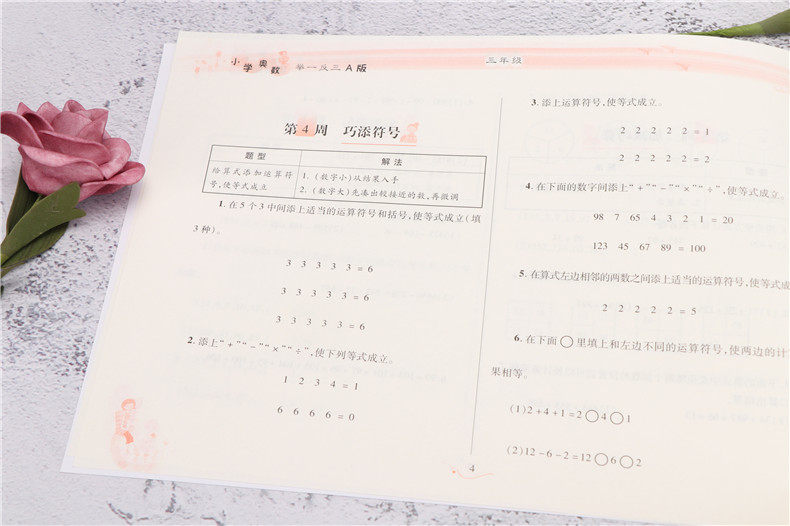 小学奥数 举一反三 A版
三年级
第4周 巧添符号
题型 解法
给算式添加运算符号,使等式成立
1.(数字小)从结果入手
2.(数字大)先凑出较接近的数,再微调
1.在5个3中间添上适当的运算符号和括号,使等式成立(填
3种)。
3 3 3 3 3 = 6
3 3 3 3 3 = 6
3 3 3 3 3 = 6
2.添上“+”“-”“×”“÷”,使下列等式成立。
1 2 3 4 = 1
6 6 6 6 = 0
4
3.添上运算符号,使等式成立。
2 2 2 2 2 = 1
2 2 2 2 2 = 2
4.在下面的数字间添上“+”“-”“×”“÷”,使等式成立。
98 7 65 4 3 2 1 = 20
123 45 67 89 = 100
5.在算式左边相邻的两数之间添上适当的运算符号,使等式成
2 2 2 2 2 = 5
6.在下面○里填上和左边不同的运算符号,使两边的计
果相等。
(1)2+4+1=2○4○1
(2)12-6-2=12○6○2